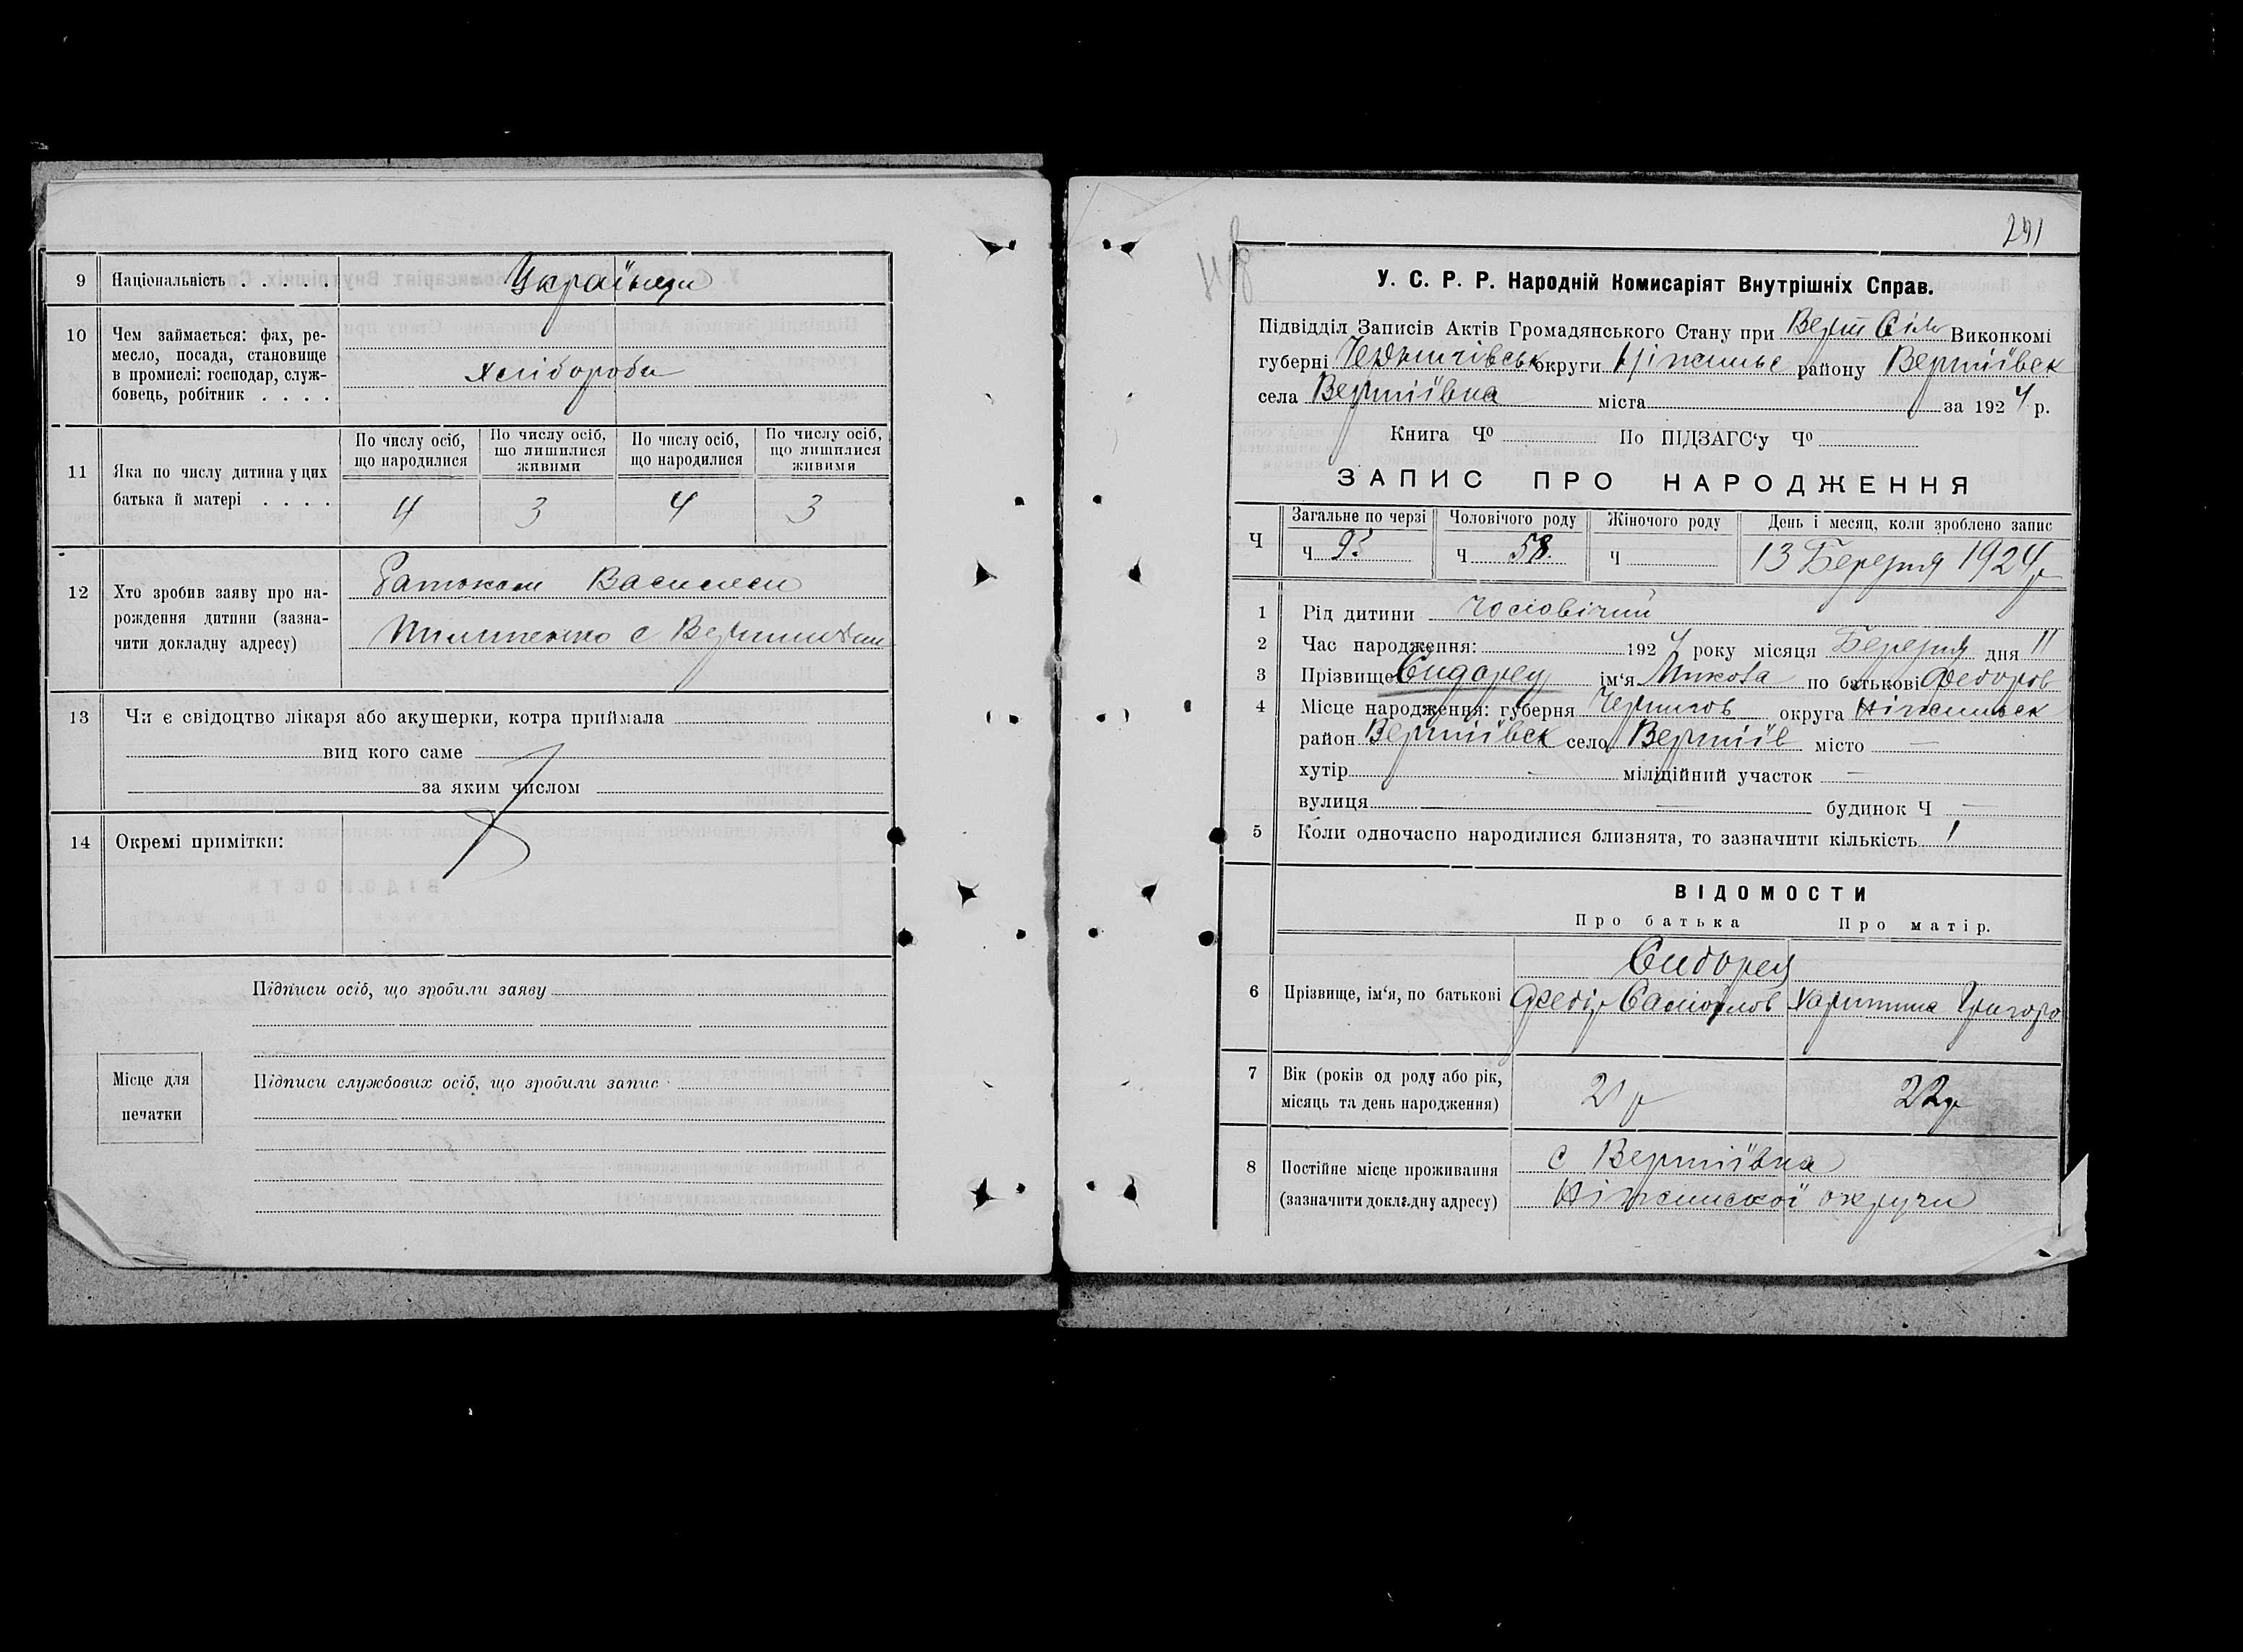 9 Національність . . . . . Українци
10 Чем займається: фах, ре-
месло, посада, становище
в промислі: господар, служ-
бовець, робітник . . . . Хлібороби
11 Яка по числу дитина у цих
батька й матері . . . .
По числу осіб, що народилися
По числу осіб, що лишилися живими
По числу осіб, що народилися
По числу осіб, що лишилися живими
4 3 4 3
12 Хто зробив заяву про на-
рождення дитини (зазна-
чити докладну адресу)
Батьком Василем
13 Чи є свідоцтво лікаря або акушерки, котра приймала
вид кого саме
за яким числом
14 Окремі примітки:
Підписи осіб, що зробили заяву
Місце для
печатки
Підписи службових осіб, що зробили запис
У. С. Р. Р. Народній Комисаріят Внутрішніх Справ.
Підвідділ Записів Актів Громадянського Стану при Верт Сіль Виконкомі
губерні округи району Вертіївск
села Вертіївка міста за 1924 р.
Книга Ч⁰ По ПІДЗАГС‘у Ч⁰
ЗАПИС ПРО НАРОДЖЕННЯ
Ч
Загальне по черзі Чоловічого роду Жіночого роду День і месяц, коли зроблено запис
Ч Ч 58. Ч 13 Березня 1924 р
1 Рід дитини чоловічий
2 Час народження: 1924 року місяця Березня дня 11
3 Прізвище Сидорец ім‘я Микола по батькові Федоров
4 Місце народження: губерня Чернигов округа Ніжинск
район Вертіївск село Вертіїв місто —
хутір - міліційний участок —
вулиця — будинок Ч —
5 Коли одночасно народилися близнята, то зазначити кількість 1
ВІДОМОСТИ
Про батька Про матір.
Сидорец
6 Прізвище, ім‘я, по батькові Федір Харитина Григоро
7 Вік (років од роду або рік,
місяць та день народження) 22р
8 Постійне місце проживання с Вертіївка
(зазначити докладну адресу) Ніжинскої округи